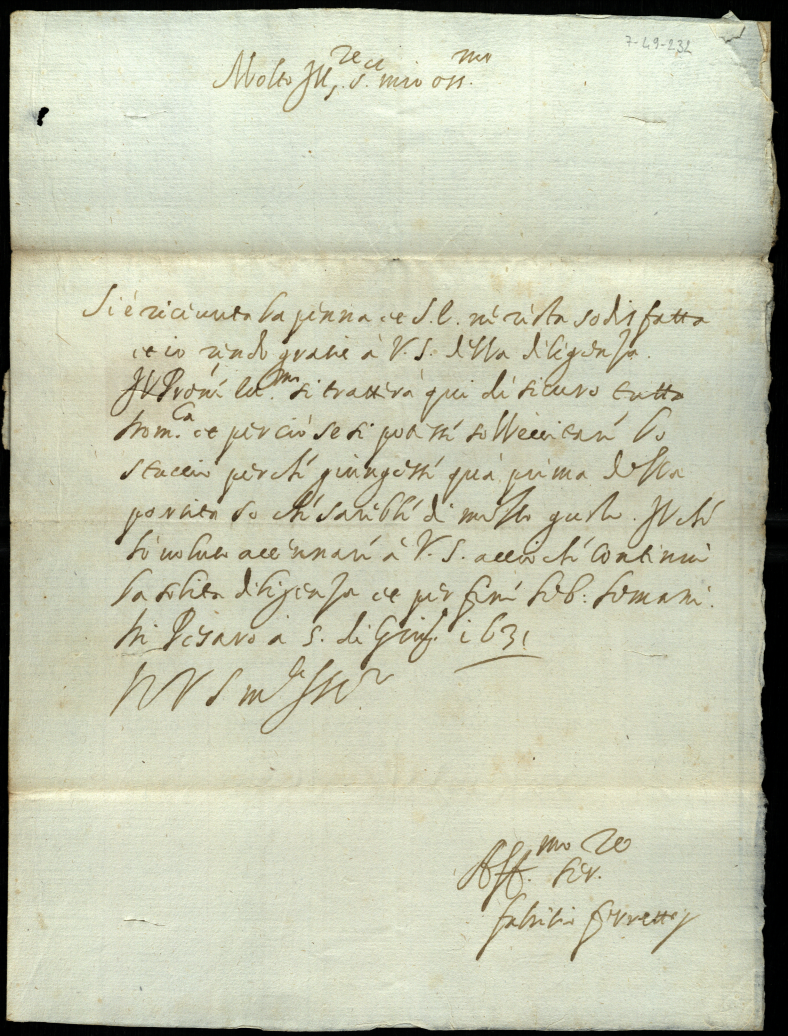 7-49-232
Molto Ill.re et S. mio oss.mo
Si è riceuuta la penna et S. E. ne resta sodisfatta
et io rendo gratie à V. S. della diligenza.
si tratterà quì di sicuro tutta
Dom.ca et perciò se si potesse sollecitare lo
stuccio perche giungesse quà prima della
partita so che sarebbe di molto gusto. Il che
hò uoluto accennare à V. S. accio che continui
la solita diligenza et per fine le b: le mani.
Di Pesaro à 5. di Giug. 1631
D V S m.to Ill.re
Aff.mo Ser.re
Fabritio Ferretti